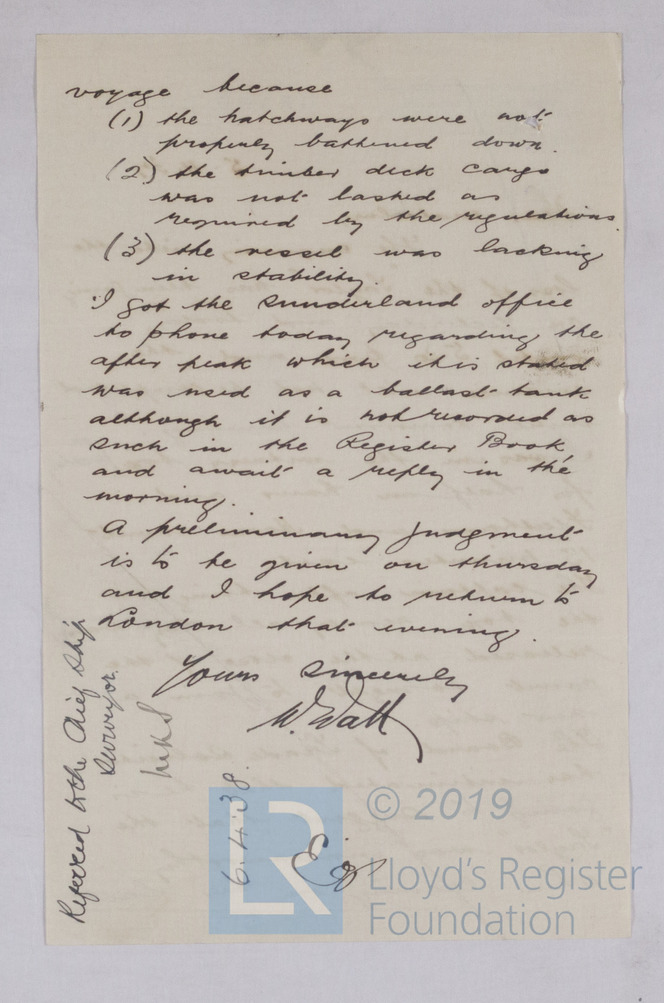 voyage because
(1) the hatchways were not
properly battened down.
(2) the timber deck cargo
was not lashed as
required by the regulations.
(3) the vessel was lacking
in stability.
I got the Sunderland office
to phone today regarding the
after peak which it is stated
was used as a ballast tank
although it is not recorded as
such in the Register Book,
and await a reply in the
morning.
A preliminary judgment
is to be given on thursday
and I hope to return to
London that evening.
Yours sincerely
W. Watt
Referred to the Chief Ship
Surveyor.
6.4.38.
LR
© 2019
Lloyd's Register
Foundation